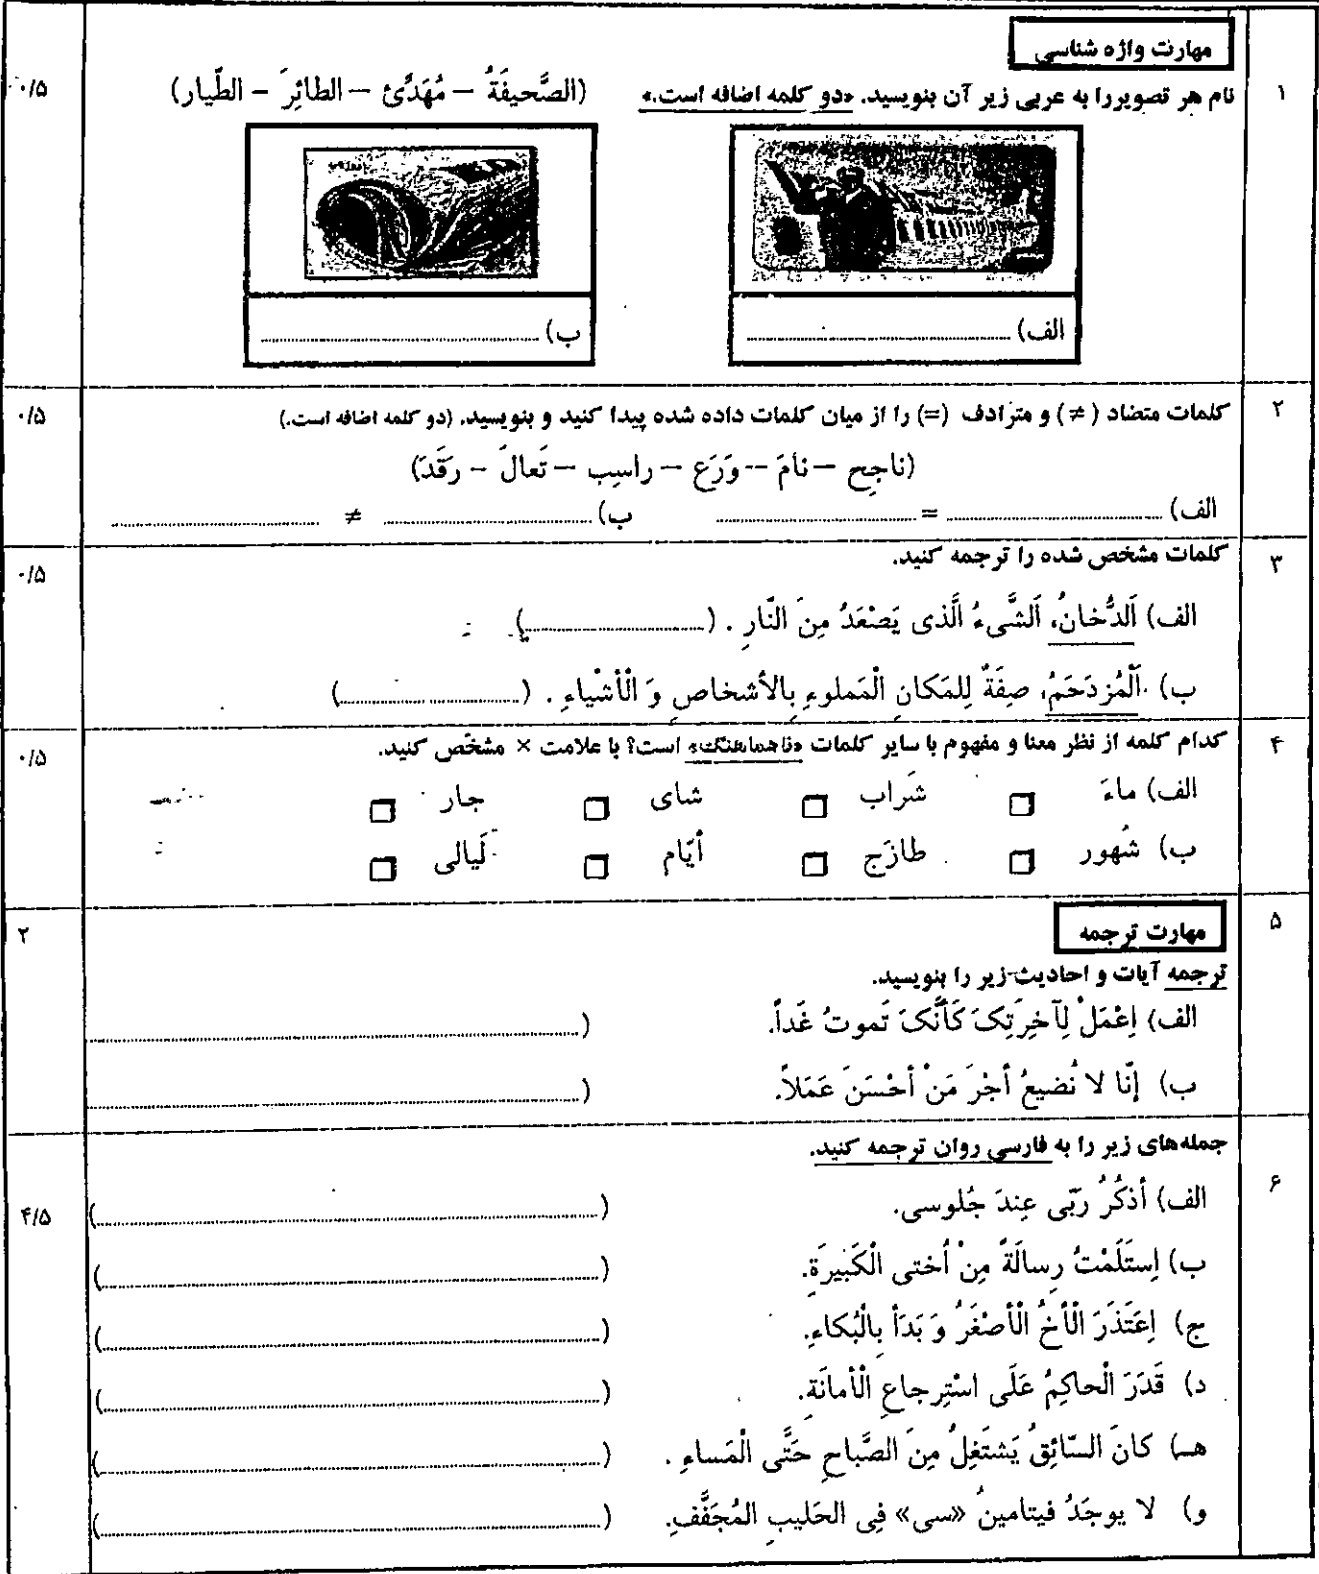 مهارت واژه شناسی
۱ نام هر تصویررا به عربی زیر آن بنویسید. «دو کلمه اضافه است.» (الصَّحیفَةُ – مُهَدِّئ – الطائِرَ – الطّیار) ۰/۵
الف) ........................ ب) ........................
۲ کلمات متضاد (≠) و مترادف (=) را از میان کلمات داده شده پیدا کنید و بنویسید. (دو کلمه اضافه است.) ۰/۵
(ناجِح – نامَ – وَرَع – راسِب – تَعالَ – رَقَدَ)
الف) .................... = .................... ب) .................... ≠ ....................
۳ کلمات مشخص شده را ترجمه کنید. ۰/۵
الف) اَلدُّخانُ، اَلشَّیءُ الَّذی یَصْعَدُ مِنَ النّارِ . (....................)
ب) اَلْمُزدَحَمُ، صِفَةٌ لِلمَکانِ الْمَملوءِ بِالأشخاصِ وَ الْأشْیاءِ . (....................)
۴ کدام کلمه از نظر معنا و مفهوم با سایر کلمات «ناهماهنگ» است؟ با علامت × مشخّص کنید. ۰/۵
الف) ماءَ □ شَراب □ شای □ جار □
ب) شُهور □ طازَج □ أیّام □ لَیالی □
۵ مهارت ترجمه ۲
ترجمه آیات و احادیث زیر را بنویسید.
الف) اِعْمَلْ لِآخِرَتِکَ کَأَنَّکَ تَموتُ غَداً. (....................
ب) إنّا لا نُضیعُ أجْرَ مَنْ أحْسَنَ عَمَلاً. (....................
جمله‌های زیر را به فارسی روان ترجمه کنید.
۶ الف) أذکُرُ رَبّی عِندَ جُلوسی. (....................) ۴/۵
ب) اِستَلَمْتُ رِسالَةً مِنْ اُختی الْکَبیرَةِ. (....................)
ج) اِعتَذَرَ الْأخُ الْأصْغَرُ وَ بَدَأ بِالْبُکاءِ. (....................)
د) قَدَرَ الْحاکِمُ عَلَی اسْتِرجاعِ الْأمانَةِ. (....................)
هـ) کانَ السّائِقُ یَشتَغِلُ مِنَ الصَّباحِ حَتَّی الْمَساءِ . (....................)
و) لا یوجَدُ فیتامینُ «سی» فِی الحَلیبِ المُجَفَّفِ. (....................)